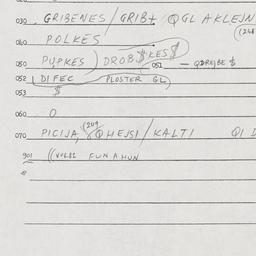 030 GRIBENES / GRIBT QGL AKLEJN
(121
040 POLKES
050 PUPKES ) DROB$KES$
051 — QDREJBE $
052 DIFEC PLOSTER GL
053 $
060 O
070 PICIJA, QHEJSI / KALTI QI D
(209
901 ((VUL81 FUNAHUN